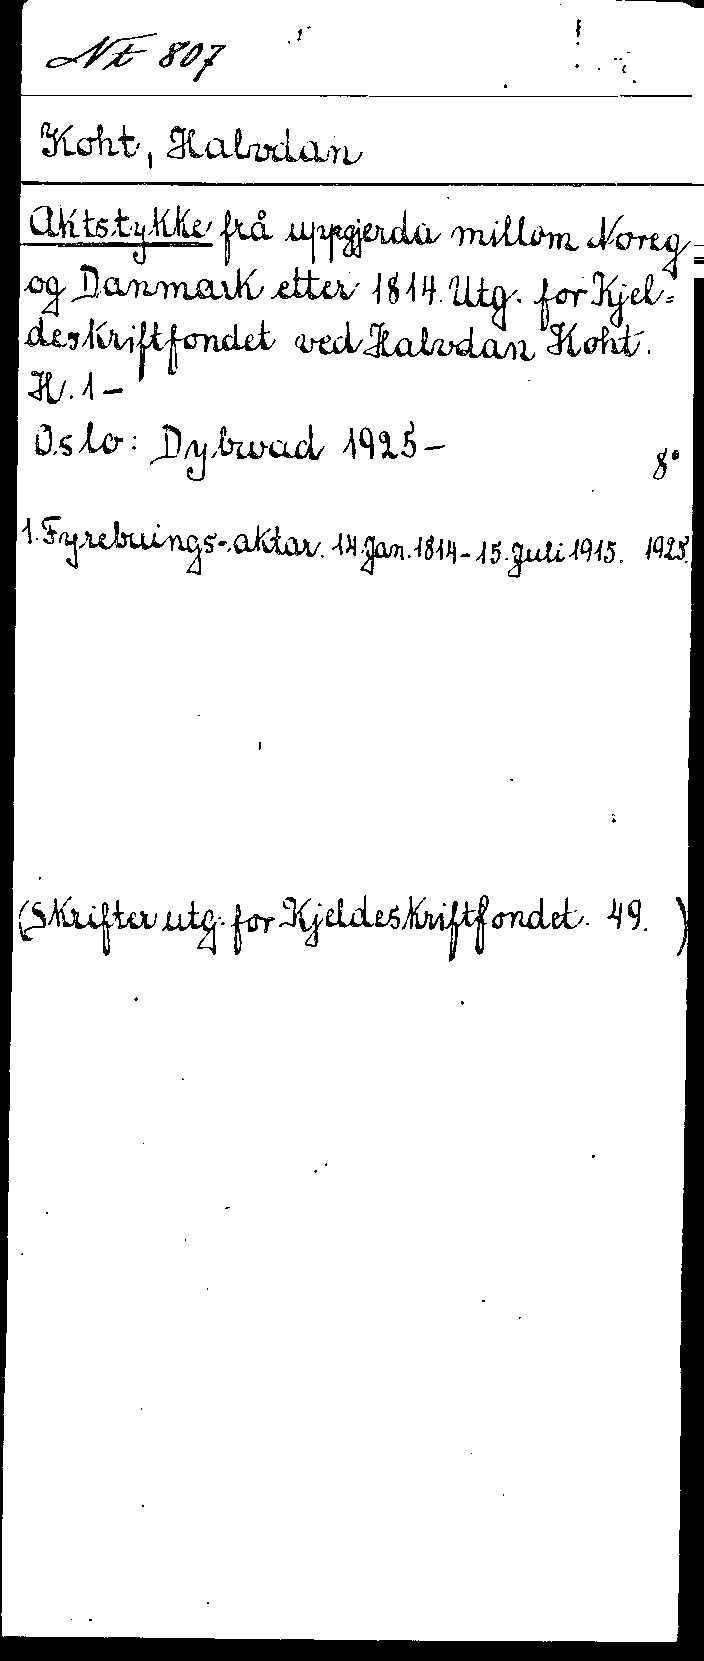 NE 807
Koht, Halvdan
Aktstykke frå uppgjerda millom Noreg
og Danmark etter 1814. Utg. for Kjel=
deskriftfondet ved Halvdan Koht.
H. 1 –
Oslo: Dybwad 1925 –
8°
1. Fyrebuings-aktar. 14. Jan. 1814 – 15. Juli 1915. 1925.
(Skrifter utg. for Kjeldeskriftfondet. 49. )